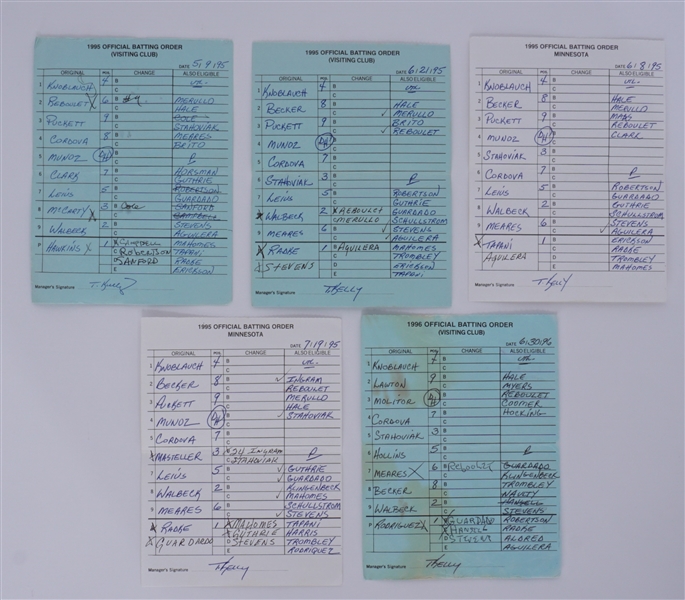 1995 OFFICIAL BATTING ORDER
(VISITING CLUB)
DATE 5/9/95
ORIGINAL POS. CHANGE ALSO ELIGIBLE
1 KNOBLAUCH 4 B
C
2 REBOULET 6 B #9 MERULLO
C HALE
3 PUCKETT 9 B COLE
C STAHOVIAK
4 CORDOVA 8 B MEARES
C BRITO
5 MUNOZ DH B
C
6 CLARK 7 B HORSMAN
C GUTHRIE
7 LEIUS 5 B ROBERTSON
C GUARDADO
8 MCCARTY X 3 B COLE SANFORD
C
9 WALBECK 2 B STEVENS
C AGUILERA
P HAWKINS X 1 B CAMPBELL MAHOMES
C ROBERTSON TAPANI
D SANFORD RADKE
E ERICKSON
Manager's Signature T. Kelly
1995 OFFICIAL BATTING ORDER
(VISITING CLUB)
DATE 6/21/95
ORIGINAL POS. CHANGE ALSO ELIGIBLE
1 KNOBLAUCH 4 B
C
2 BECKER 8 B HALE
C MERULLO
3 PUCKETT 9 B BRITO
C REBOULET
4 MUNOZ DH B
C
5 CORDOVA 7 B
C
6 STAHOVIAK 3 B
C
7 LEIUS 5 B ROBERTSON
C GUTHRIE
8 X WALBECK 2 X REBOULET GUARDADO
C MERULLO SCHULLSTROM
9 MEARES 6 B STEVENS
C AGUILERA
X RADKE 1 B AGUILERA MAHOMES
C TROMBLEY
STEVENS D ERICKSON
E TAPANI
Manager's Signature T Kelly
1995 OFFICIAL BATTING ORDER
MINNESOTA
DATE 6/8/95
ORIGINAL POS. CHANGE ALSO ELIGIBLE
1 KNOBLAUCH 4 B
C
2 BECKER 8 B HALE
C MERULLO
3 PUCKETT 9 B MAAS
C REBOULET
4 MUNOZ DH B CLARK
C
5 STAHOVIAK 3 B
C
6 CORDOVA 7 B
C
7 LEIUS 5 B ROBERTSON
C GUARDADO
8 WALBECK 2 B GUTHRIE
C SCHULLSTROM
9 MEARES 6 B STEVENS
C AGUILERA
X TAPANI 1 B ERICKSON
C RADKE
AGUILERA D TROMBLEY
E MAHOMES
Manager's Signature T Kelly
1995 OFFICIAL BATTING ORDER
MINNESOTA
DATE 7/19/95
ORIGINAL POS. CHANGE ALSO ELIGIBLE
1 KNOBLAUCH 4 B
C
2 BECKER 8 B INGRAM
C REBOULET
3 PUCKETT 9 B MERULLO
C HALE
4 MUNOZ DH B STAHOVIAK
C
5 CORDOVA 7 B
C
6 X MASTELLER 3 X 24 INGRAM
C STAHOVIAK
7 LEIUS 5 B GUTHRIE
C GUARDADO
8 WALBECK 2 B KLINGENBECK
C MAHOMES
9 MEARES 6 B SCHULLSTROM
C STEVENS
X RADKE 1 X MAHOMES TAPANI
X GUTHRIE HARRIS
X GUARDADO D STEVENS TROMBLEY
E RODRIGUEZ
Manager's Signature T Kelly
1996 OFFICIAL BATTING ORDER
(VISITING CLUB)
DATE 6/30/96
ORIGINAL POS. CHANGE ALSO ELIGIBLE
1 KNOBLAUCH 4 B
C
2 LAWTON 9 B HALE
C MYERS
3 MOLITOR DH B REBOULET
C COOMER
4 CORDOVA 7 B HOCKING
C
5 STAHOVIAK 3 B
C
6 HOLLINS 5 B
C
7 MEARES X 6 B Reboulet GUARDADO
C KLINGENBECK
8 BECKER 8 B TROMBLEY
C NAULTY
9 WALBECK 2 B HANSELL
C STEVENS
P RODRIGUEZ X 1 X GUARDADO ROBERTSON
X HANSELL RADKE
D STEVENS ALDRED
E AGUILERA
Manager's Signature T Kelly